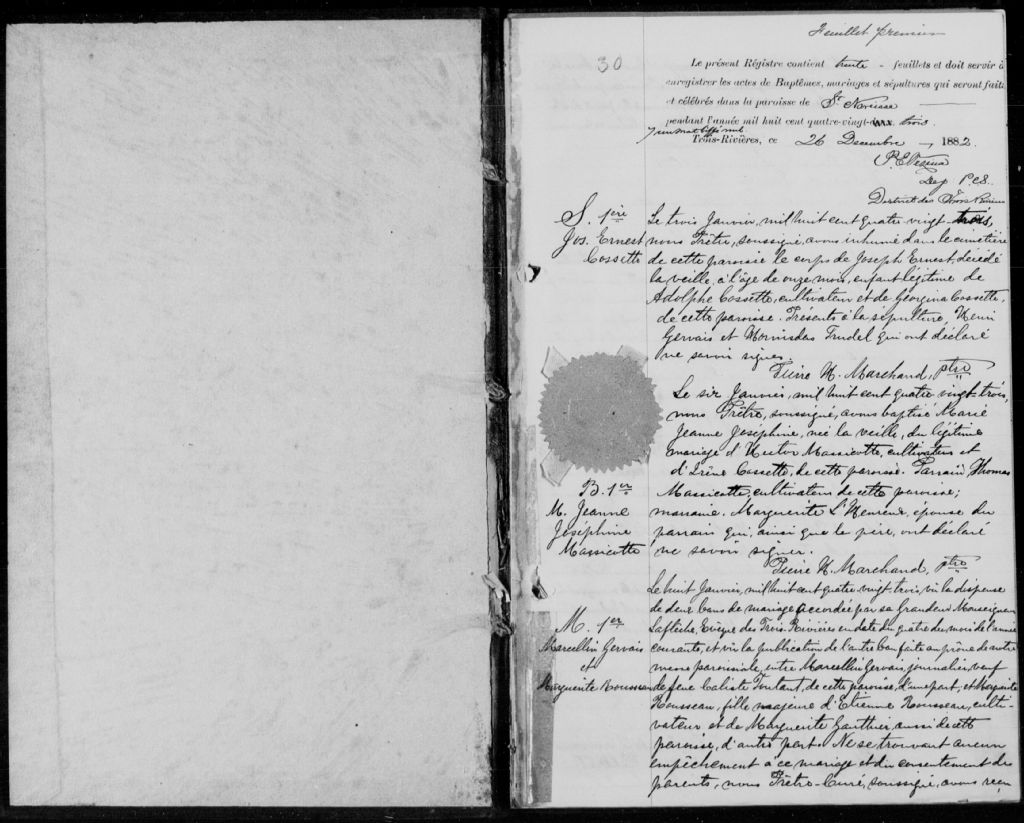 Feuillet premier
30
Le présent Régistre contient trente - feuillets et doit servir à
enregistrer les actes de Baptêmes, mariages et sépultures qui seront faits
et célébrés dans la paroisse de St Narcisse
pendant l'année mil huit cent quatre-vingt-trois.
Trois-Rivières, ce 26 Decembre 1882.
Dep. P.C.S.
District des Trois Rivières
S. 1ère
Jos. Ernest
Cossette
Le trois Janvier, mil huit cent quatre vingt-trois,
nous Prêtre, soussigné, avons inhumé dans le cimetière
de cette paroisse le corps de Joseph Ernest, décédé
la veille, à l'âge de onze mois, enfant légitime de
Adolphe Cossette, cultivateur et de Georgina Cossette,
de cette paroisse. Présents à la sépulture, Henri
Gervais et Hormisdas Trudel qui ont déclaré
ne savoir signer.
Pierre H. Marchand, ptre
B. 1er
M. Jeanne
Joséphine
Massicotte
Le six Janvier, mil huit cent quatre vingt-trois,
nous Prêtre, soussigné, avons baptisé Marie
Jeanne Joséphine, née la veille, du légitime
mariage d'Hector Massicotte, cultivateur et
d'Irène Cossette, de cette paroisse. Parrain Thomas
Massicotte, cultivateur de cette paroisse;
marraine, Marguerite L'Heureux, épouse du
parrain qui, ainsi que le père, ont déclaré
ne savoir signer.
Pierre H. Marchand, ptre
M. 1er
Marcellin Gervais
et
Marguerite Rousseau
Le huit Janvier, mil huit cent quatre vingt-trois, vu la dispense
de deux bans de mariage accordée par sa Grandeur Monseigneur
Laflèche, Evêque des Trois-Rivières en date du quatre du mois de l'année
courante, et vu la publication de l'autre ban faite au prône de notre
messe paroissiale, entre Marcellin Gervais, journalier, veuf
de feue Caliste Toutant, de cette paroisse, d'une part; et Marguerite
Rousseau, fille majeure d'Etienne Rousseau, culti-
vateur et de Marguerite Gauthier aussi de cette
paroisse, d'autre part. Ne se trouvant aucun
empêchement à ce mariage et du consentement des
parents, nous Prêtre-Curé, soussigné, avons reçu